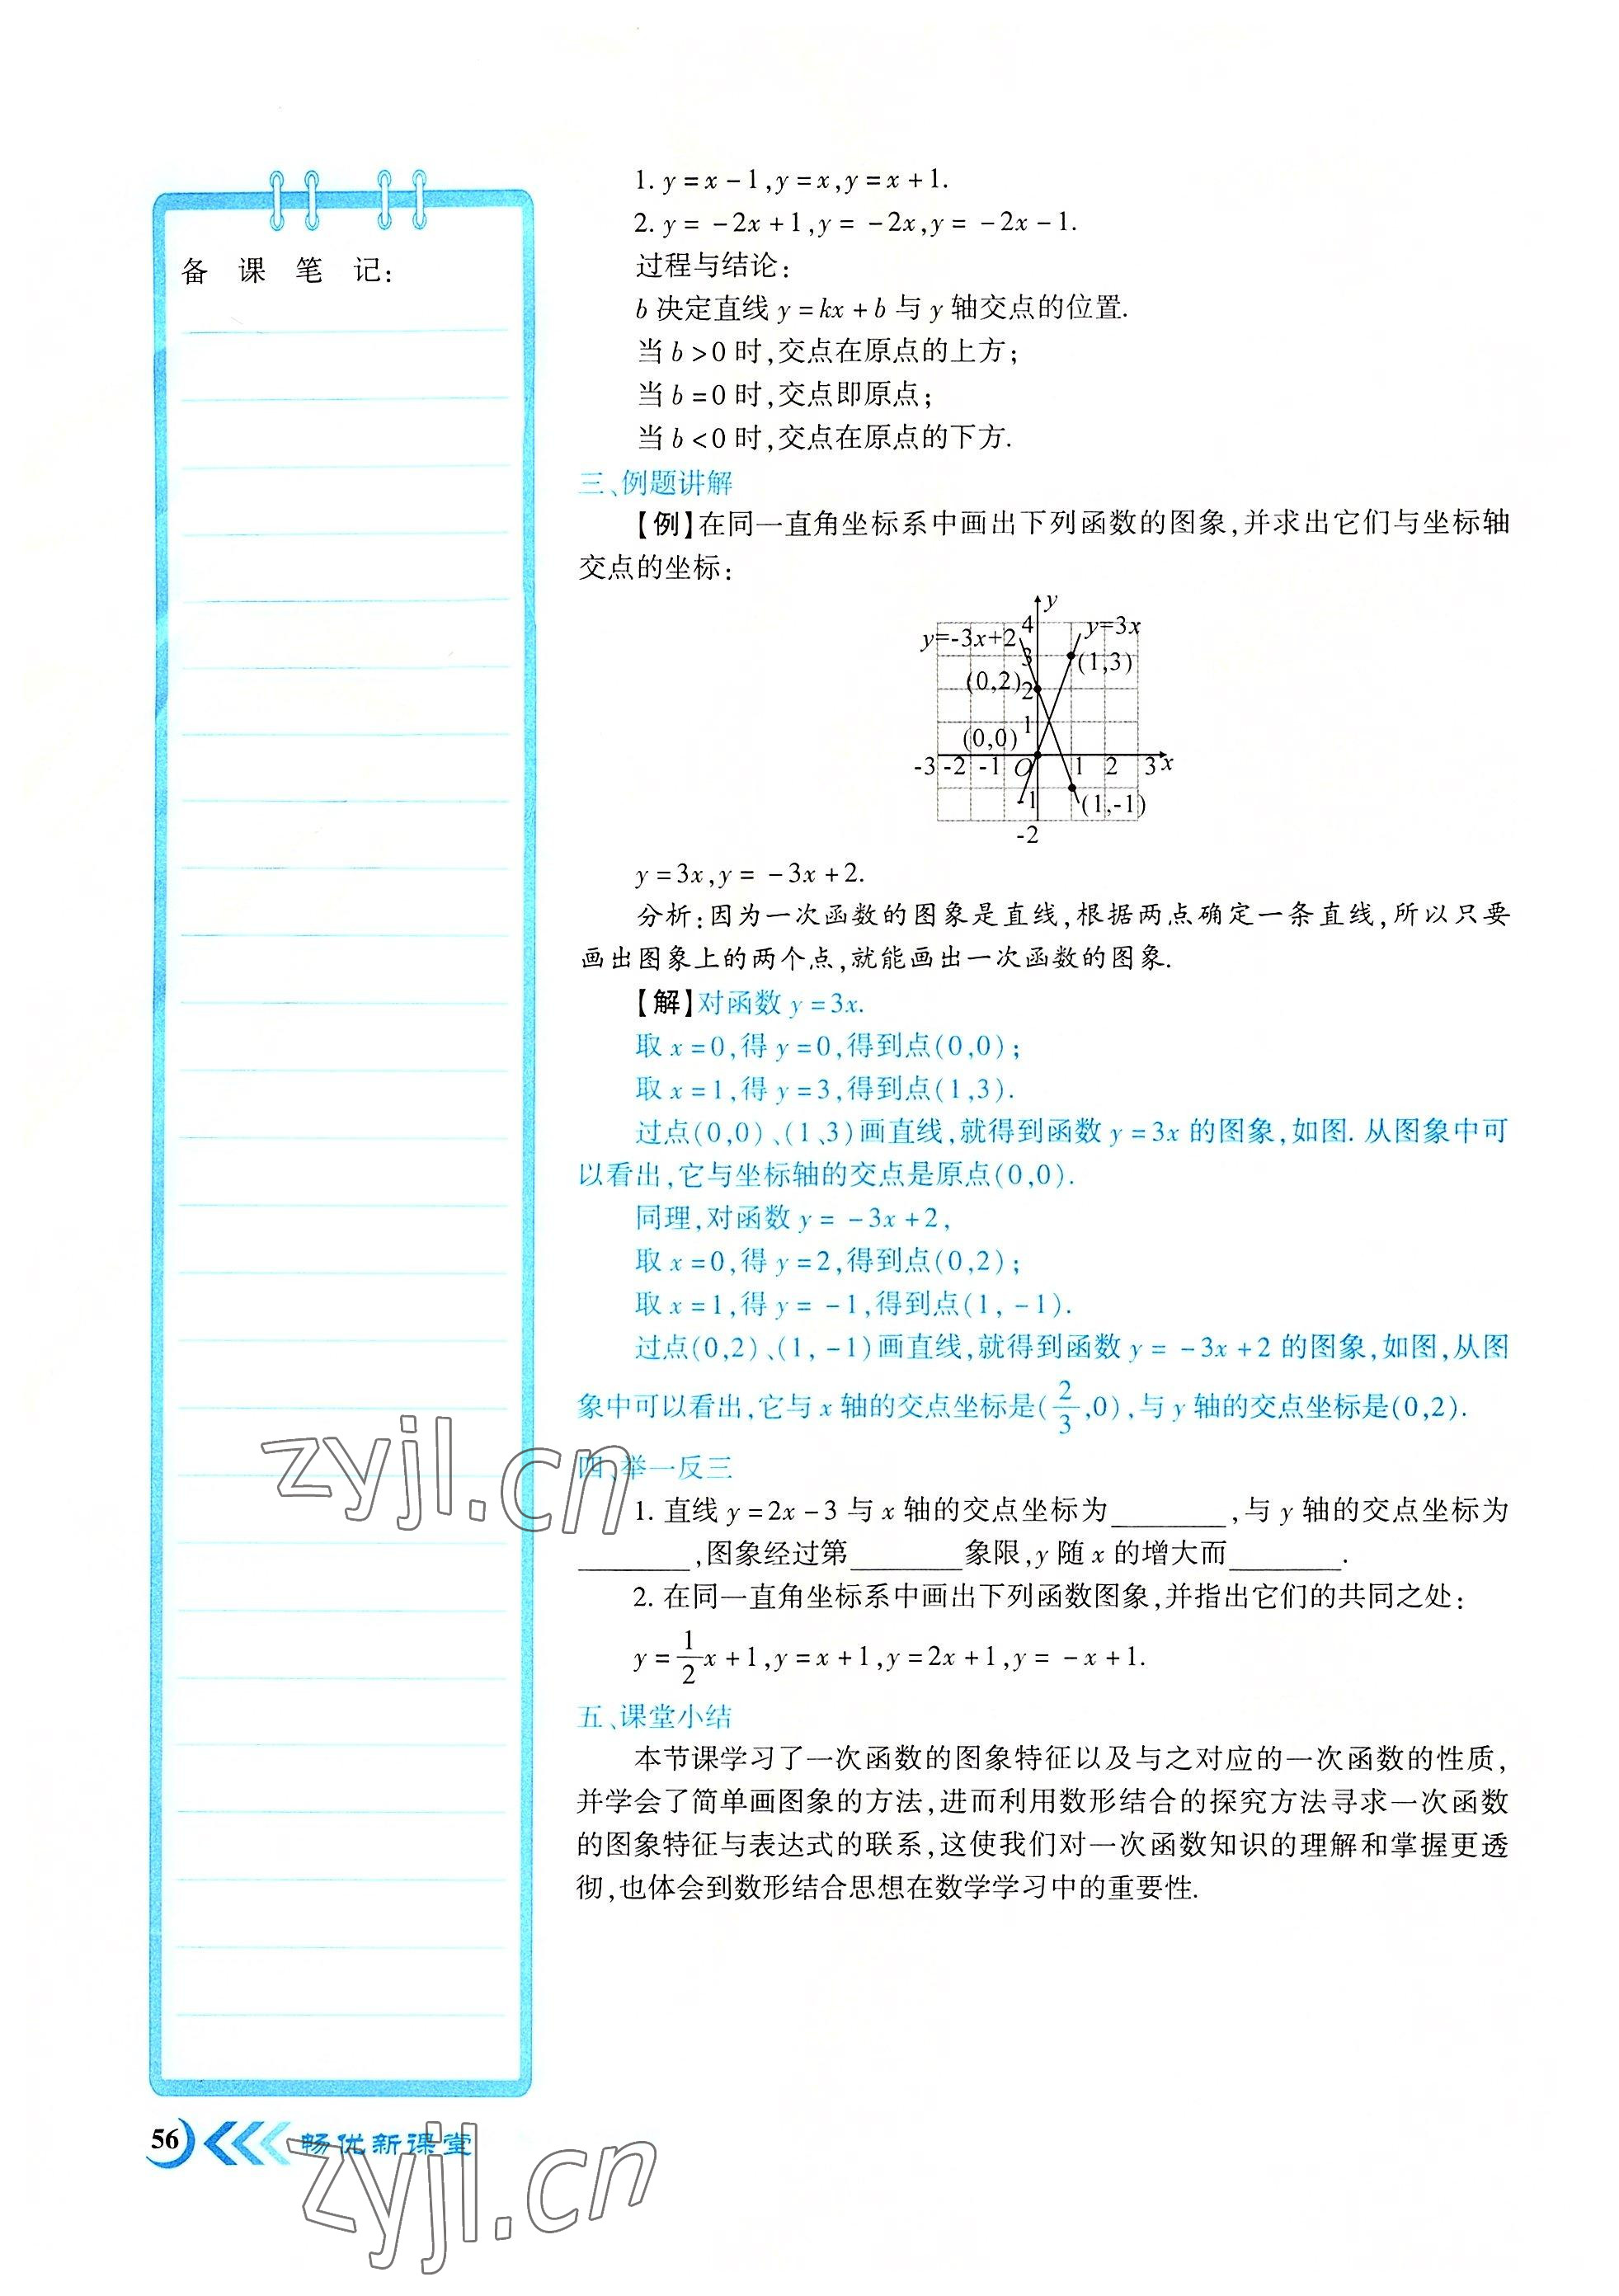 备 课 笔 记：
1. y=x-1,y=x,y=x+1.
2. y=-2x+1,y=-2x,y=-2x-1.
过程与结论：
b 决定直线 y=kx+b 与 y 轴交点的位置.
当 b>0 时,交点在原点的上方;
当 b=0 时,交点即原点;
当 b<0 时,交点在原点的下方.
三、例题讲解
【例】在同一直角坐标系中画出下列函数的图象,并求出它们与坐标轴
交点的坐标：
y
4
y=-3x+2
y=3x
3
(1,3)
(0,2)
2
1
(0,0)
-3 -2 -1 O 1 2 3 x
-1
(1,-1)
-2
y=3x,y=-3x+2.
分析:因为一次函数的图象是直线,根据两点确定一条直线,所以只要
画出图象上的两个点,就能画出一次函数的图象.
【解】对函数 y=3x.
取 x=0,得 y=0,得到点(0,0);
取 x=1,得 y=3,得到点(1,3).
过点(0,0)、(1、3)画直线,就得到函数 y=3x 的图象,如图.从图象中可
以看出,它与坐标轴的交点是原点(0,0).
同理,对函数 y=-3x+2,
取 x=0,得 y=2,得到点(0,2);
取 x=1,得 y=-1,得到点(1,-1).
过点(0,2)、(1,-1)画直线,就得到函数 y=-3x+2 的图象,如图,从图
象中可以看出,它与 x 轴的交点坐标是(2/3,0),与 y 轴的交点坐标是(0,2).
四、举一反三
1. 直线 y=2x-3 与 x 轴的交点坐标为________,与 y 轴的交点坐标为
________,图象经过第________象限,y 随 x 的增大而________.
2. 在同一直角坐标系中画出下列函数图象,并指出它们的共同之处：
y=1/2x+1,y=x+1,y=2x+1,y=-x+1.
五、课堂小结
本节课学习了一次函数的图象特征以及与之对应的一次函数的性质,
并学会了简单画图象的方法,进而利用数形结合的探究方法寻求一次函数
的图象特征与表达式的联系,这使我们对一次函数知识的理解和掌握更透
彻,也体会到数形结合思想在数学学习中的重要性.
zyjl.cn
56
畅优新课堂
zyjl.cn